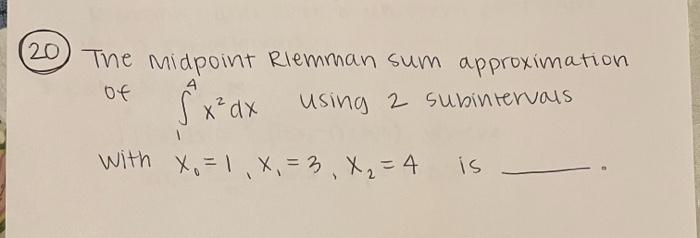 20 The Midpoint Riemman sum approximation
of ∫₁⁴ x² dx using 2 subintervals
with x₀ = 1, x₁ = 3, x₂ = 4 is ______.